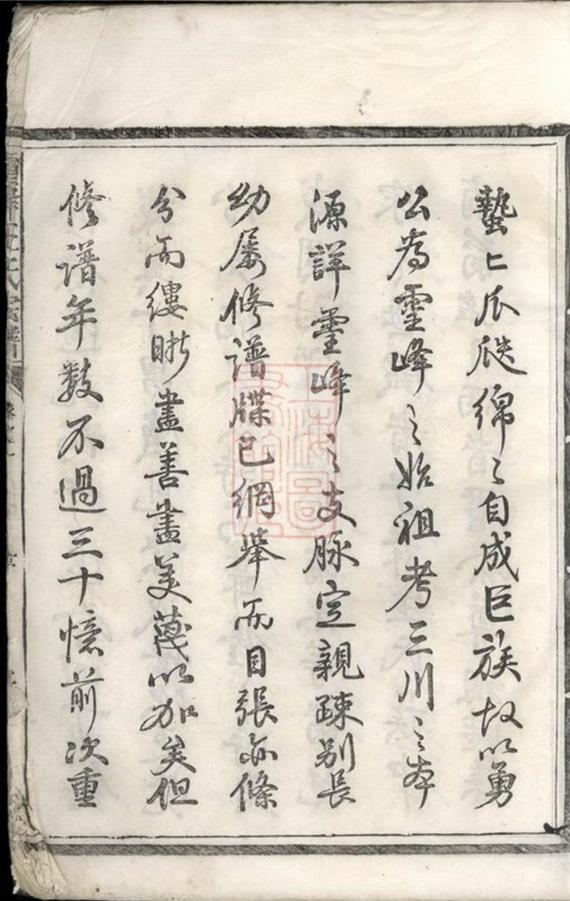 蟄〻瓜瓞綿〻自成巨族故以勇
公為靈峰之始祖考三川之本
源詳靈峰之支脉定親疎别長
幼屡修譜牒已綱舉而目張亦條
分而缕晰盡善盡美蔑以加矣但
修谱年数不過三十憶前次重